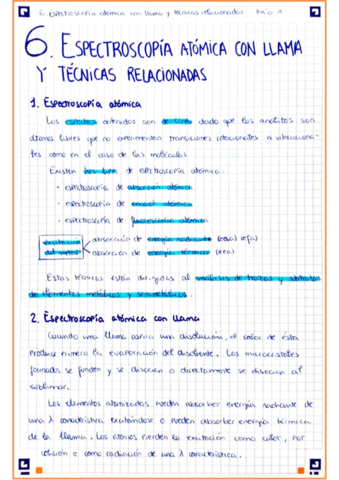 6. Espectroscopía atómica con llama y técnicas relacionadas PÁG 1
6. ESPECTROSCOPÍA ATÓMICA CON LLAMA
Y TÉCNICAS RELACIONADAS
1. Espectroscopía atómica
Los espectros obtenidos son de líneas dado que los analitos son
átomos libres que no experimentan transiciones rotacionales ni vibraciona-
les como en el caso de las moléculas
Existen tres tipos de espectroscopía atómica:
· espectroscopía de absorción atómica
· espectroscopía de emisión atómica
· espectroscopía de fluorescencia atómica
excitación absorción de energía radiante (eaa) (efa)
del absorción de energía térmica (eea)
Estas técnicas están dirigidas al análisis de trazas y
de elementos metálicos y semimetálicos.
2. Espectroscopía atómica con llama
Cuando una llama aspira una disolución, el calor de ésta
produce primero la evaporación del disolvente. Los microcristales
formados se funden y se disocian o directamente se disocian al
sublimar.
Los elementos atomizados pueden absorber energía radiante de
una λ característica excitándose o pueden absorber energía térmica
de la llama. Los átomos pierden la excitación como calor, por
colisión o como radiación de una λ característica.